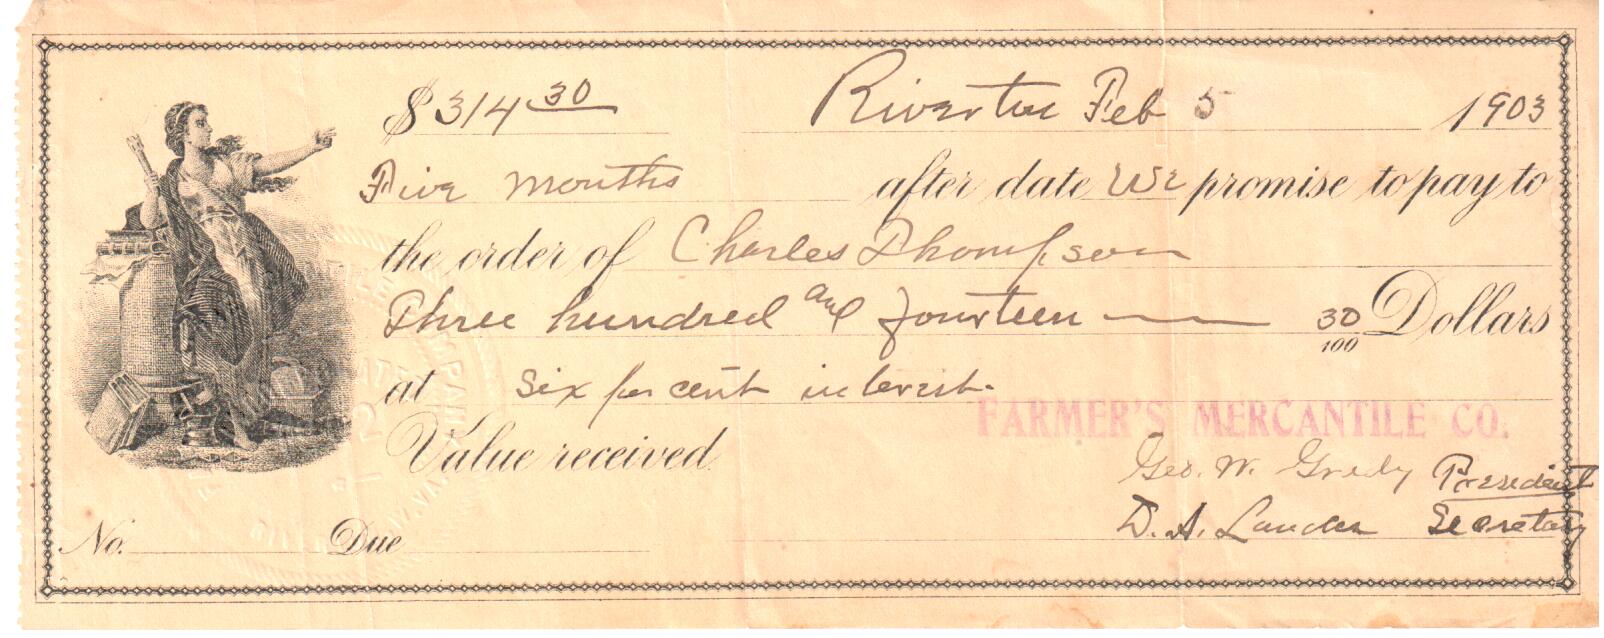 $314 30 Riverton Feb 5 1903
Five months after date We promise to pay to
the order of Charles Thompson
Three hundred and fourteen 30/100 Dollars
at six per cent interest.
FARMER'S MERCANTILE CO.
Value received
Geo. W. Grady President
D. A. Lander Secretary
No. Due